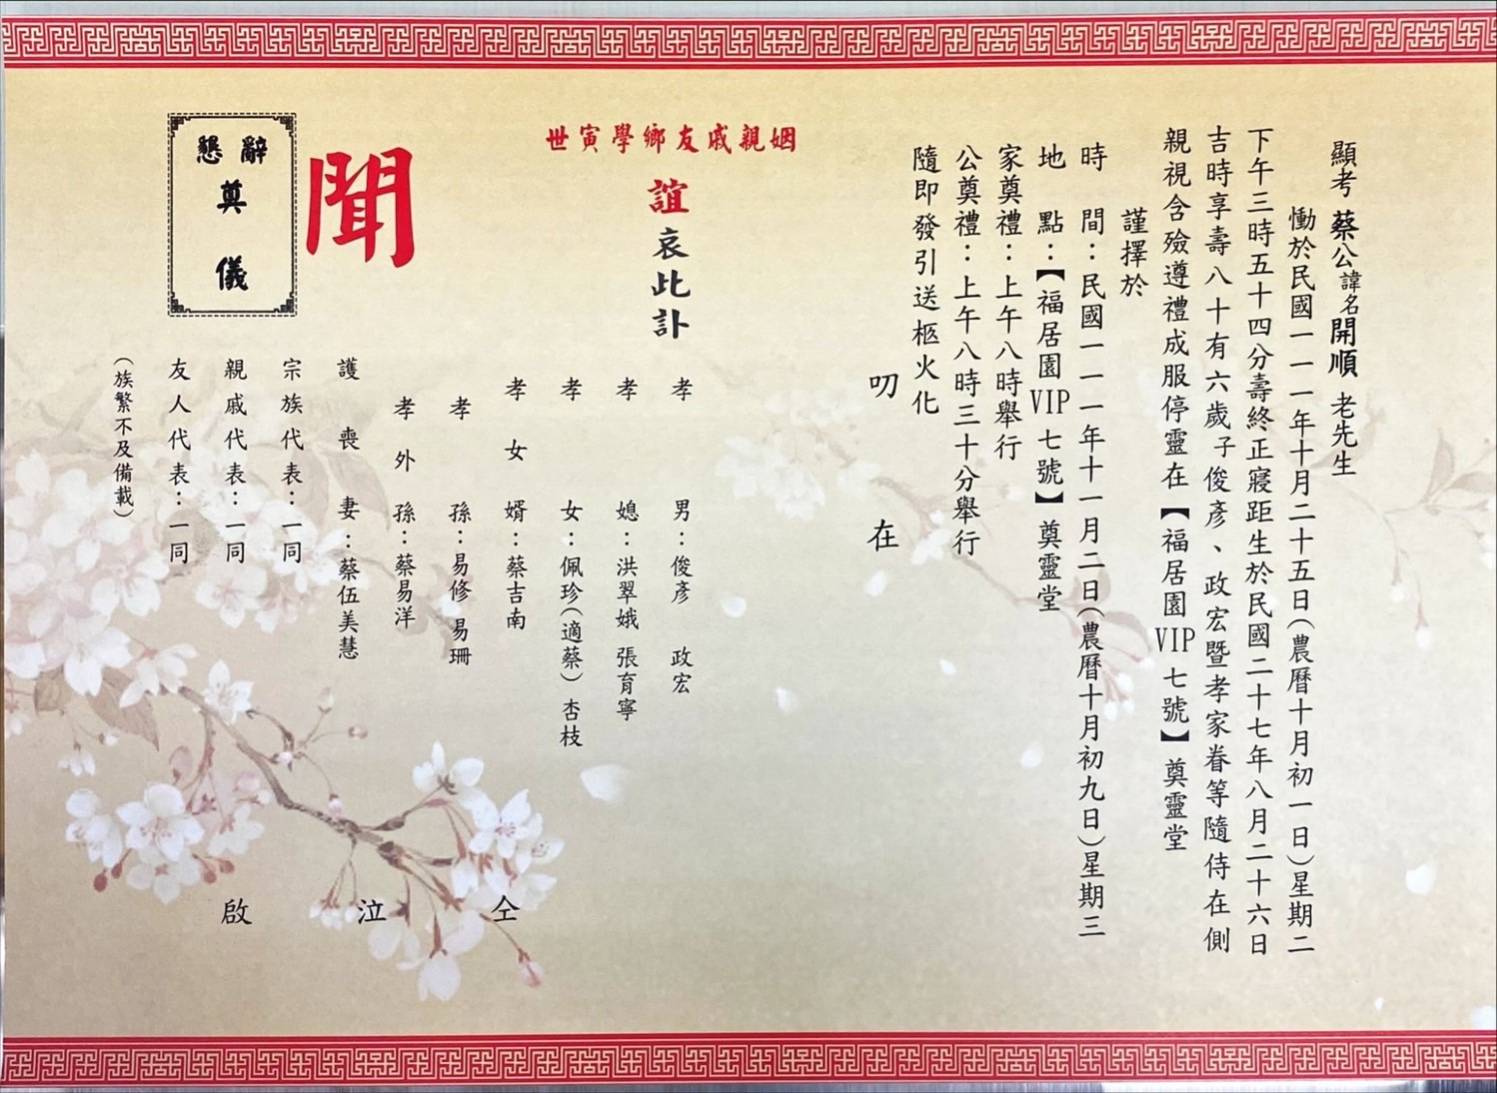 顯考蔡公諱名開順老先生
慟於民國一一一年十月二十五日(農曆十月初一日)星期二
下午三時五十四分壽終正寢距生於民國二十七年八月二十六日
吉時享壽八十有六歲子俊彥、政宏暨孝家眷等隨侍在側
親視含殮遵禮成服停靈在【福居園VIP七號】奠靈堂
謹擇於
時間：民國一一一年十一月二日(農曆十月初九日)星期三
地點：【福居園VIP七號】奠靈堂
家奠禮：上午八時舉行
公奠禮：上午八時三十分舉行
隨即發引送柩火化
叨在
姻親戚友鄉學寅世
誼哀此訃
聞
孝男：俊彥 政宏
孝媳：洪翠娥 張育寧
孝女：佩珍(適蔡) 杏枝
孝女婿：蔡吉南
孝孫：易修 易珊
孝外孫：蔡易洋
護喪妻：蔡伍美慧
宗族代表：一同
親戚代表：一同
友人代表：一同
(族繁不及備載)
仝泣啟
懇辭
奠儀